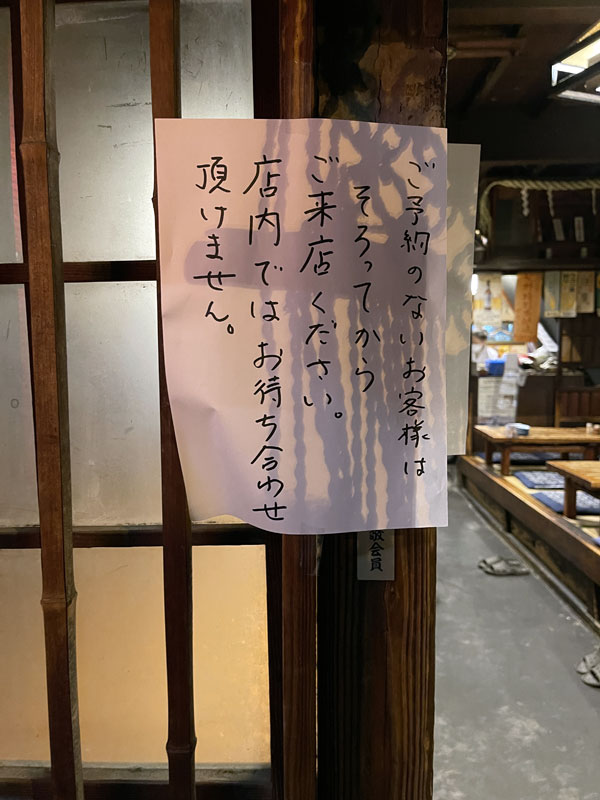 ご予約のないお客様は
そろってから
ご来店ください。
店内ではお待ち合わせ
頂けません。
会員